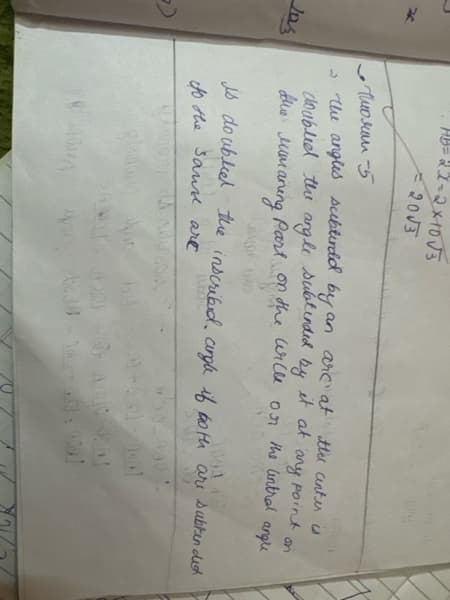 x
AB = 2x = 2 × 10√3
= 20√3
→ Theorem - 5
→ The angles subtended by an arc at the center is
doubled the angle subtended by it at any point on
the remaining part on the circle or the central angle
is doubled the inscribed angle if both are subtended
to the same arc